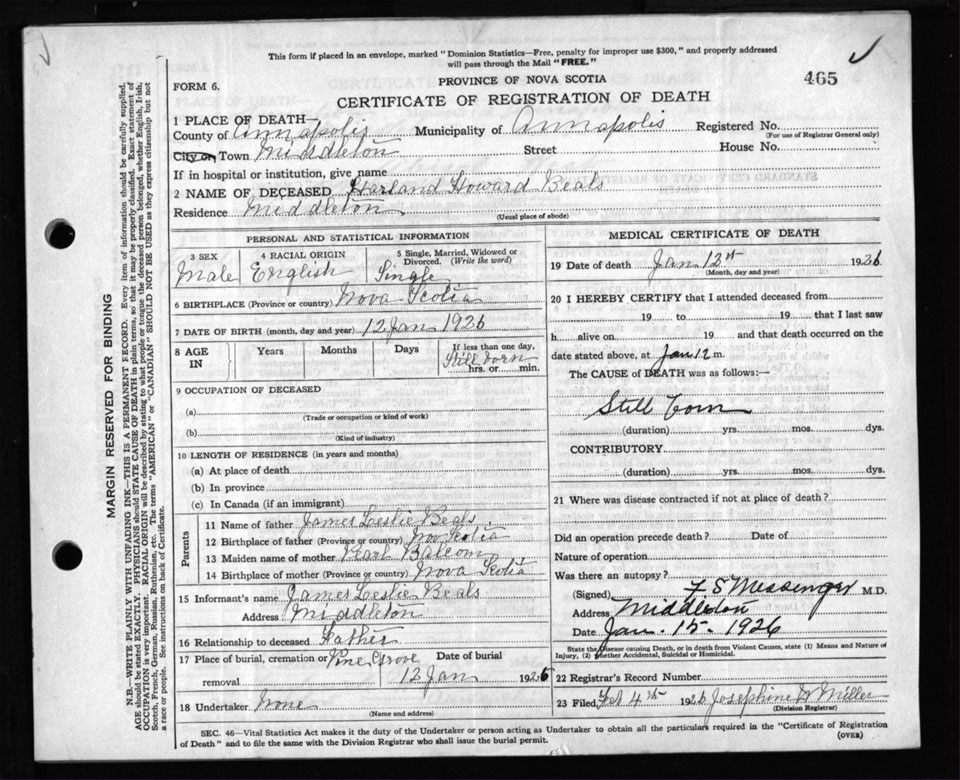 This form if placed in an envelope, marked "Dominion Statistics—Free, penalty for improper use $300," and properly addressed
will pass through the Mail "FREE."
465
FORM 6.
PROVINCE OF NOVA SCOTIA
CERTIFICATE OF REGISTRATION OF DEATH
1 PLACE OF DEATH—
County of Annapolis Municipality of Annapolis Registered No.
(For use of Registrar General only)
City or Town Middleton Street House No.
If in hospital or institution, give name
2 NAME OF DECEASED Harland Howard Beals
Residence Middleton
(Usual place of abode)
PERSONAL AND STATISTICAL INFORMATION
3 SEX 4 RACIAL ORIGIN 5 Single, Married, Widowed or Divorced. (Write the word)
Male English Single
6 BIRTHPLACE (Province or country) Nova Scotia
7 DATE OF BIRTH (month, day and year) 12 Jan 1926
8 AGE IN Years Months Days If less than one day,
Still born
hrs. or min.
9 OCCUPATION OF DECEASED
(a)
(Trade or occupation or kind of work)
(b)
(Kind of industry)
10 LENGTH OF RESIDENCE (in years and months)
(a) At place of death
(b) In province
(c) In Canada (if an immigrant)
Parents
11 Name of father James Leslie Beals
12 Birthplace of father (Province or country) Nov Scotia
13 Maiden name of mother Pearl Balcom
14 Birthplace of mother (Province or country) Nova Scotia
15 Informant's name James Leslie Beals
Address Middleton
16 Relationship to deceased Father
17 Place of burial, cremation or removal Pine Grove Date of burial
12 Jan 1926
18 Undertaker None
(Name and address)
MEDICAL CERTIFICATE OF DEATH
19 Date of death Jan 12th 1926
(Month, day and year)
20 I HEREBY CERTIFY that I attended deceased from
19 to 19 that I last saw
h alive on 19 and that death occurred on the
date stated above, at Jan 12 m.
The CAUSE of DEATH was as follows:—
Still born
(duration) yrs. mos. dys.
CONTRIBUTORY
(duration) yrs. mos. dys.
21 Where was disease contracted if not at place of death?
Did an operation precede death? Date of
Nature of operation
Was there an autopsy?
(Signed) F S Messenger M.D.
Address Middleton
Date Jan. 15. 1926
State the Disease causing Death, or in death from Violent Causes, state (1) Means and Nature of
Injury, (2) Whether Accidental, Suicidal or Homicidal.
22 Registrar's Record Number
23 Filed, Feb 4th 1926 Josephine W Miller
(Division Registrar)
SEC. 46—Vital Statistics Act makes it the duty of the Undertaker or person acting as Undertaker to obtain all the particulars required in the "Certificate of Registration
of Death" and to file the same with the Division Registrar who shall issue the burial permit.
(OVER)
MARGIN RESERVED FOR BINDING
N.B.—WRITE PLAINLY WITH UNFADING INK—THIS IS A PERMANENT RECORD. Every item of information should be carefully supplied.
AGE should be stated EXACTLY. PHYSICIANS should STATE CAUSE OF DEATH in plain terms, so that it may be properly classified. Exact statement of
OCCUPATION is very important. RACIAL ORIGIN will be described by stating to what people or tongue the deceased person belonged, whether English, Irish,
Scotch, French, German, Russian, Ruthenian, etc. The terms "AMERICAN" or "CANADIAN" SHOULD NOT BE USED as they express citizenship but not
a race or people. See instructions on back of Certificate.